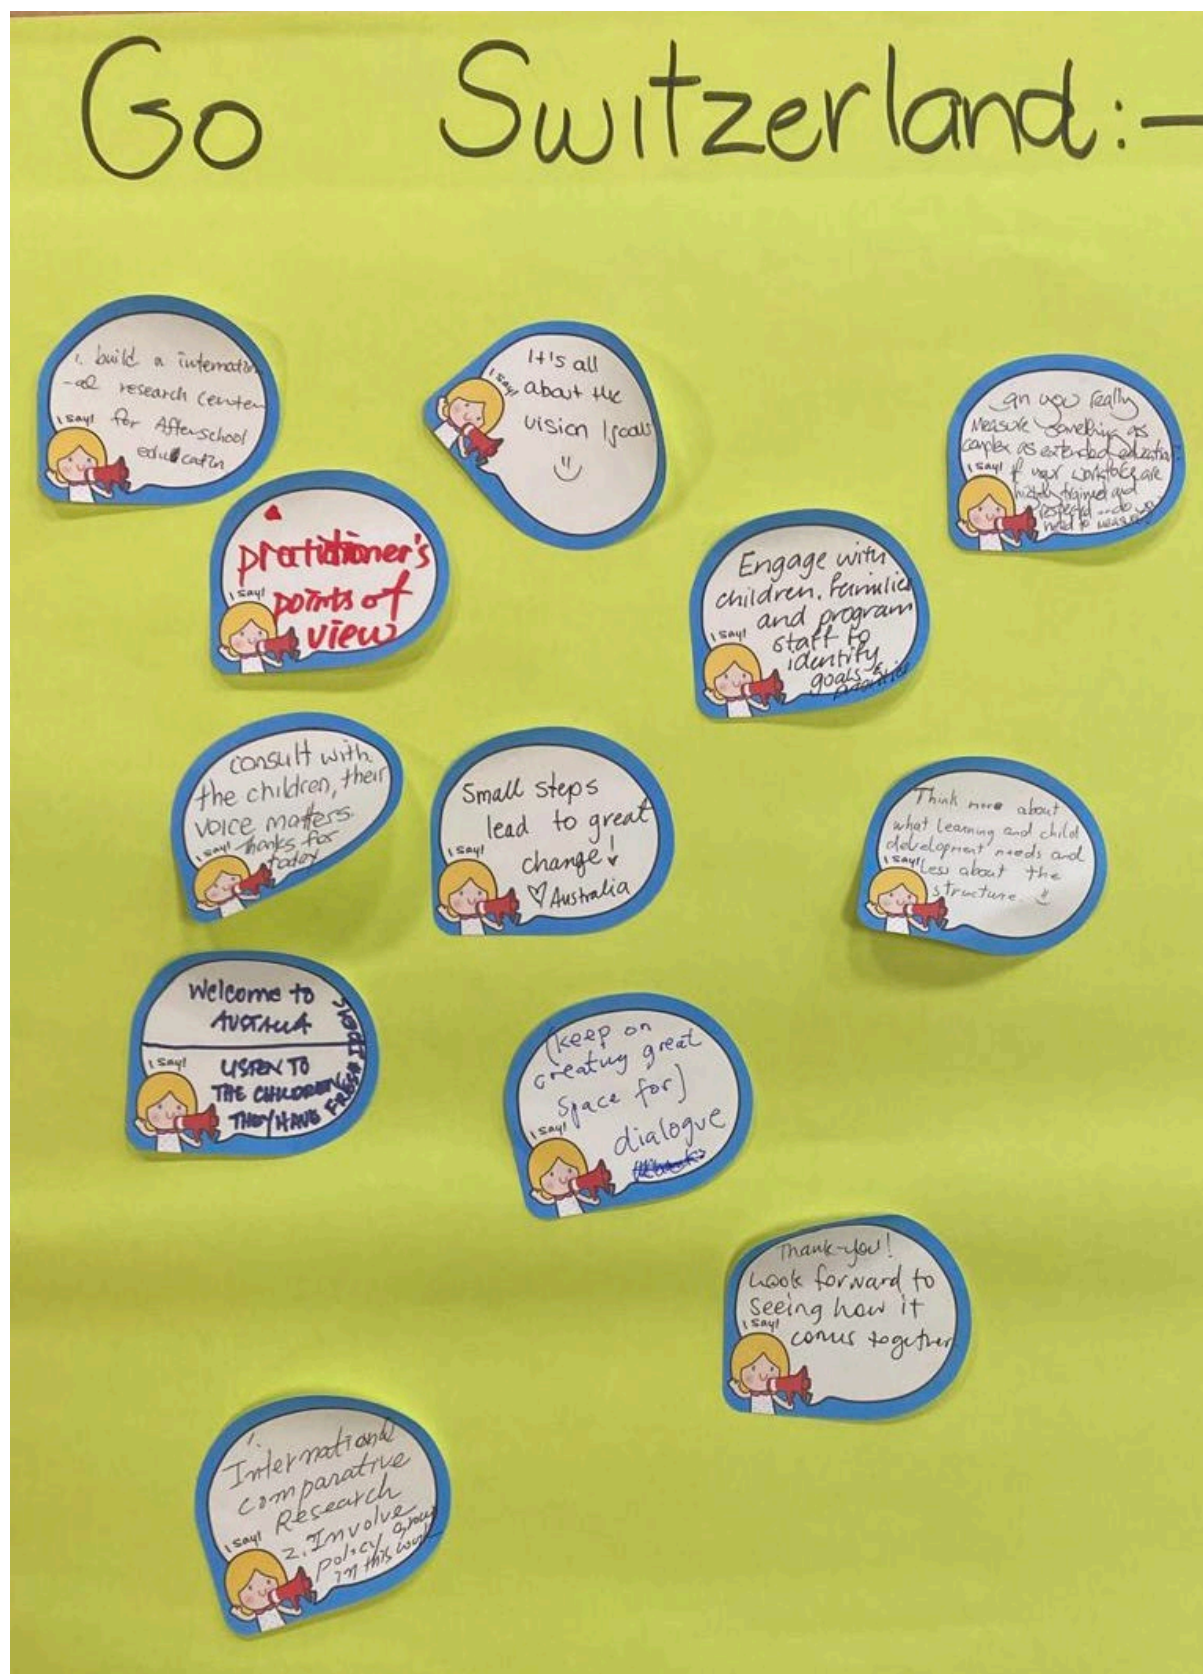 Go Switzerland:-
1. build a internation
-al research center
for Afterschool
education
I say!
It's all
about the
vision / goals
I say!
Can you really
measure something as
complex as extended education?
If your workforce are
highly trained and
respected ... do we
need to measure?
I say!
practitioner's
points of
view
I say!
Engage with
children, families
and program
staff to
identify
goals &
priorities
I say!
consult with
the children, their
voice matters.
Thanks for
today
I say!
Small steps
lead to great
change!
♡ Australia
I say!
Think more about
what learning and child
development needs and
less about the
structure.
I say!
Welcome to
AUSTALIA
LISTEN TO
THE CHILDREN
THEY HAVE FRESH IDEAS
I say!
(keep on
creating great
space for)
dialogue
I say!
Thank-you!
Look forward to
seeing how it
comes together
I say!
1.
International
comparative
Research
2. Involve
policy group
in this work
I say!